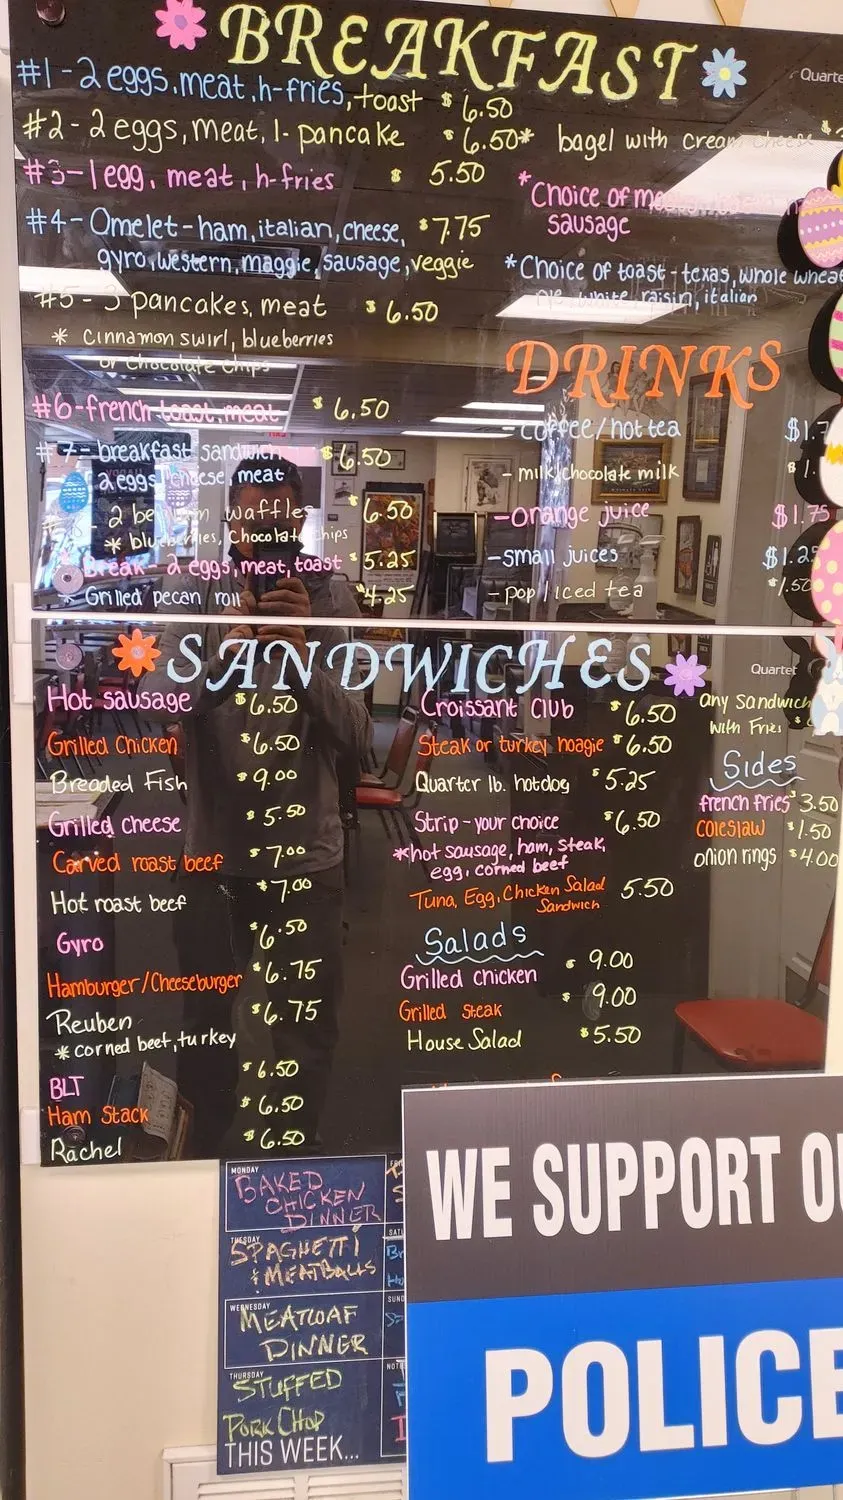 BREAKFAST
Quarte
#1-2 eggs, meat, h-fries, toast $6.50
#2-2 eggs, meat, 1-pancake $6.50
#3-1 egg, meat, h-fries $ 5.50
#4-Omelet-ham, italian, cheese, $7.75
gyro, western, maggie, sausage, veggie
#5 - 3 pancakes, meat $6.50
* cinnamon swirl, blueberries
or chocolate chips
#6-french toast, meat $6.50
#7-breakfast sandwich $6.50
2 eggs, cheese, meat
2 belgium waffles 6.50
* blueberries, Chocolate chips
Break-2 eggs, meat, toast $5.25
* Grilled pecan roll $4.25
* bagel with cream cheese $
*Choice of
sausage
*Choice of toast-texas, whole whea
rye, white, raisin, italian
DRINKS
-coffee/hot tea $1.7
-milk/chocolate milk $1.
-orange juice $1.75
-small juices $1.25
-pop/iced tea $1.50
SANDWICHES
Quartet
Hot sausage $6.50
Grilled Chicken $6.50
Breaded Fish $9.00
Grilled cheese $5.50
Carved roast beef $7.00
Hot roast beef $7.00
Gyro $6.50
Hamburger/Cheeseburger $6.75
Reuben $6.75
*corned beef, turkey
BLT $6.50
Ham Stack $6.50
Rachel $6.50
Croissant Club $6.50
Steak or turkey hoagie $6.50
Quarter lb. hotdog $5.25
Strip-your choice $6.50
*hot sausage, ham, steak,
egg, corned beef
Tuna, Egg, Chicken Salad 5.50
Sandwich
Salads
Grilled chicken $9.00
Grilled Steak $9.00
House Salad $5.50
any Sandwich
with Fries $
Sides
french fries $3.50
coleslaw $1.50
onion rings $4.00
MONDAY
BAKED
CHICKEN
DINNER
TUESDAY
SPAGHETTI
& MEATBALLS
WEDNESDAY
MEATLOAF
DINNER
THURSDAY
STUFFED
PORK CHOP
THIS WEEK...
WE SUPPORT OU
POLICE